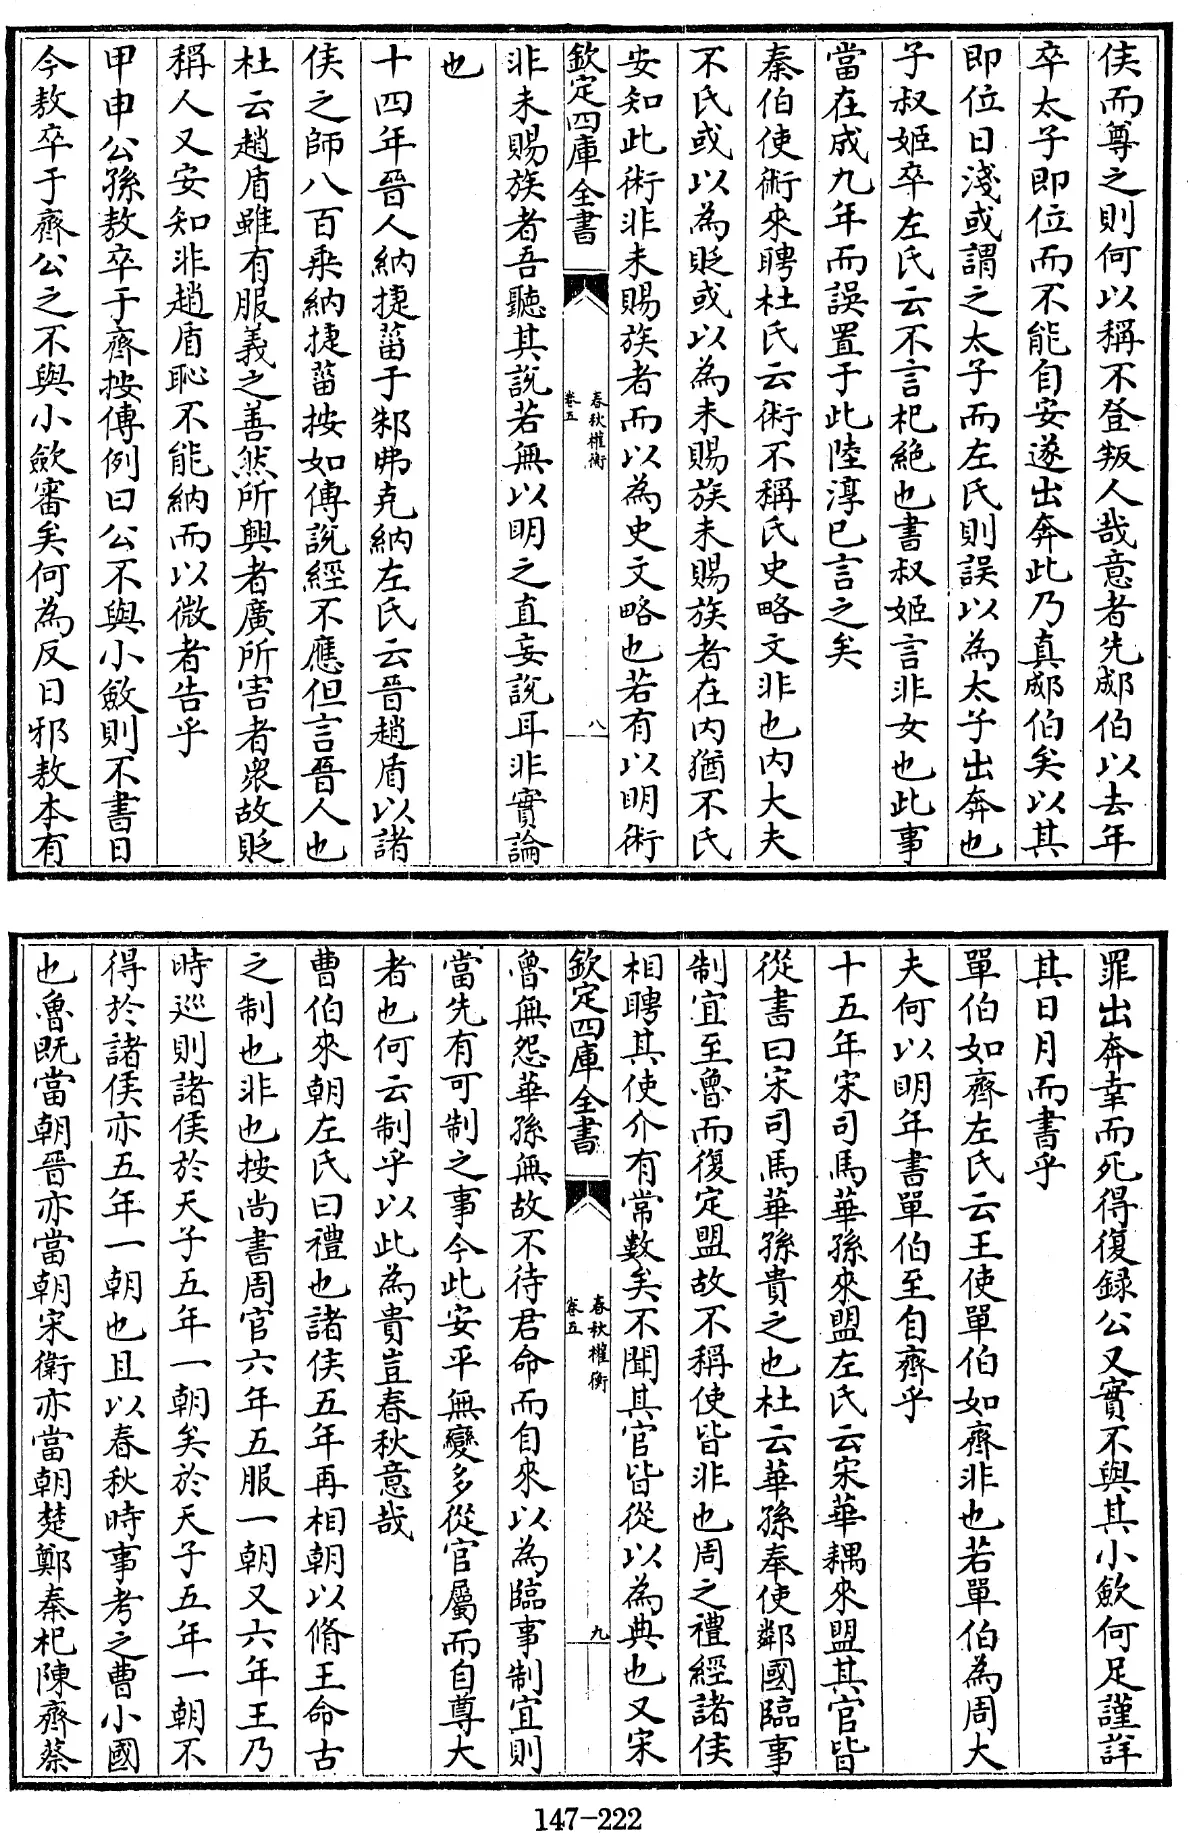 侯而尊之則何以稱不登叛人哉意者先郕伯以去年
卒太子即位而不能自安遂出奔此乃真郕伯矣以其
即位日淺或謂之太子而左氏則誤以為太子出奔也
子叔姬卒左氏云不言杞絶也書叔姬言非女也此事
當在成九年而誤置于此陸淳已言之矣
秦伯使術來聘杜氏云術不稱氏史略文非也内大夫
不氏或以為貶或以為未賜族未賜族者在内猶不氏
安知此術非未賜族者而以為史文略也若有以明術
欽定四庫全書
春秋權衡
卷五
八
非未賜族者吾聽其説若無以明之直妄説耳非實論
也
十四年晉人納捷菑于邾弗克納左氏云晉趙盾以諸
侯之師八百乘納捷菑按如傳説經不應但言晉人也
杜云趙盾雖有服義之善然所興者廣所害者衆故貶
稱人又安知非趙盾恥不能納而以微者告乎
甲申公孫敖卒于齊按傳例曰公不與小斂則不書日
今敖卒于齊公之不與小斂審矣何為反日邪敖本有
罪出奔幸而死得復録公又實不與其小斂何足謹詳
其日月而書乎
單伯如齊左氏云王使單伯如齊非也若單伯為周大
夫何以明年書單伯至自齊乎
十五年宋司馬華孫來盟左氏云宋華耦來盟其官皆
從書曰宋司馬華孫貴之也杜云華孫奉使鄰國臨事
制宜至魯而復定盟故不稱使皆非也周之禮經諸侯
相聘其使介有常數矣不聞其官皆從以為典也又宋
欽定四庫全書
春秋權衡
卷五
九
魯無怨華孫無故不待君命而自來以為臨事制宜則
當先有可制之事今此安平無變多從官屬而自尊大
者也何云制乎以此為貴豈春秋意哉
曹伯來朝左氏曰禮也諸侯五年再相朝以脩王命古
之制也非也按尚書周官六年五服一朝又六年王乃
時巡則諸侯於天子五年一朝矣於天子五年一朝不
得於諸侯亦五年一朝也且以春秋時事考之曹小國
也魯既當朝晉亦當朝宋衛亦當朝楚鄭秦杞陳齊蔡
147-222